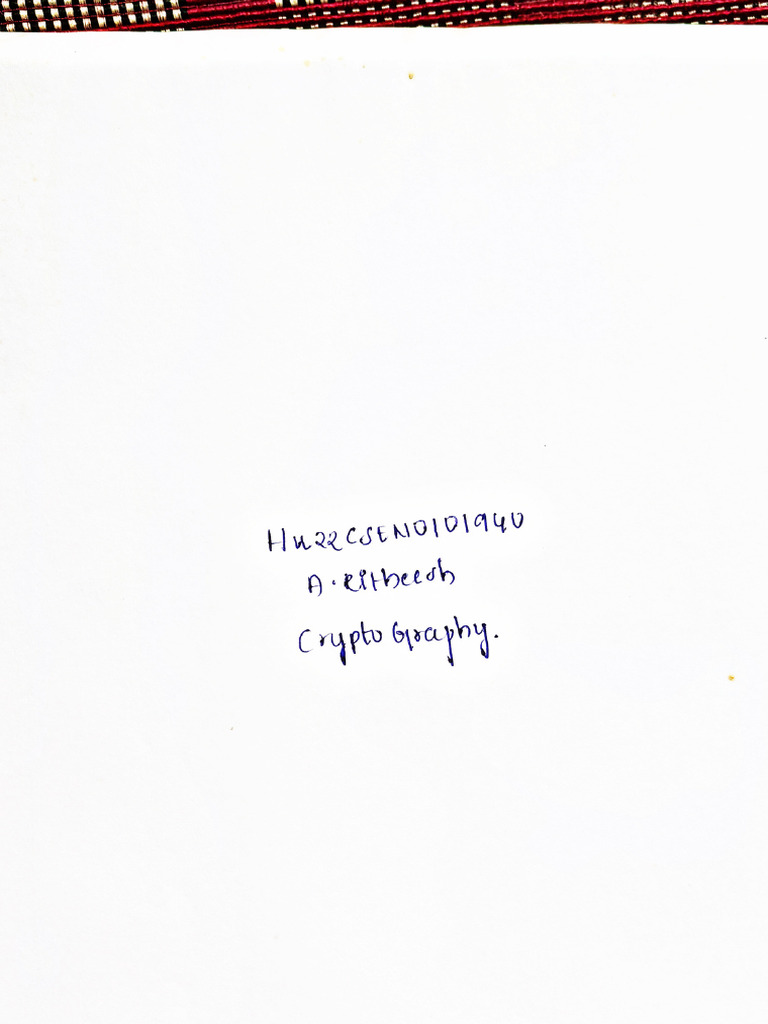 Hu22CSEN0101940
A. Ritheesh
Cryptography.